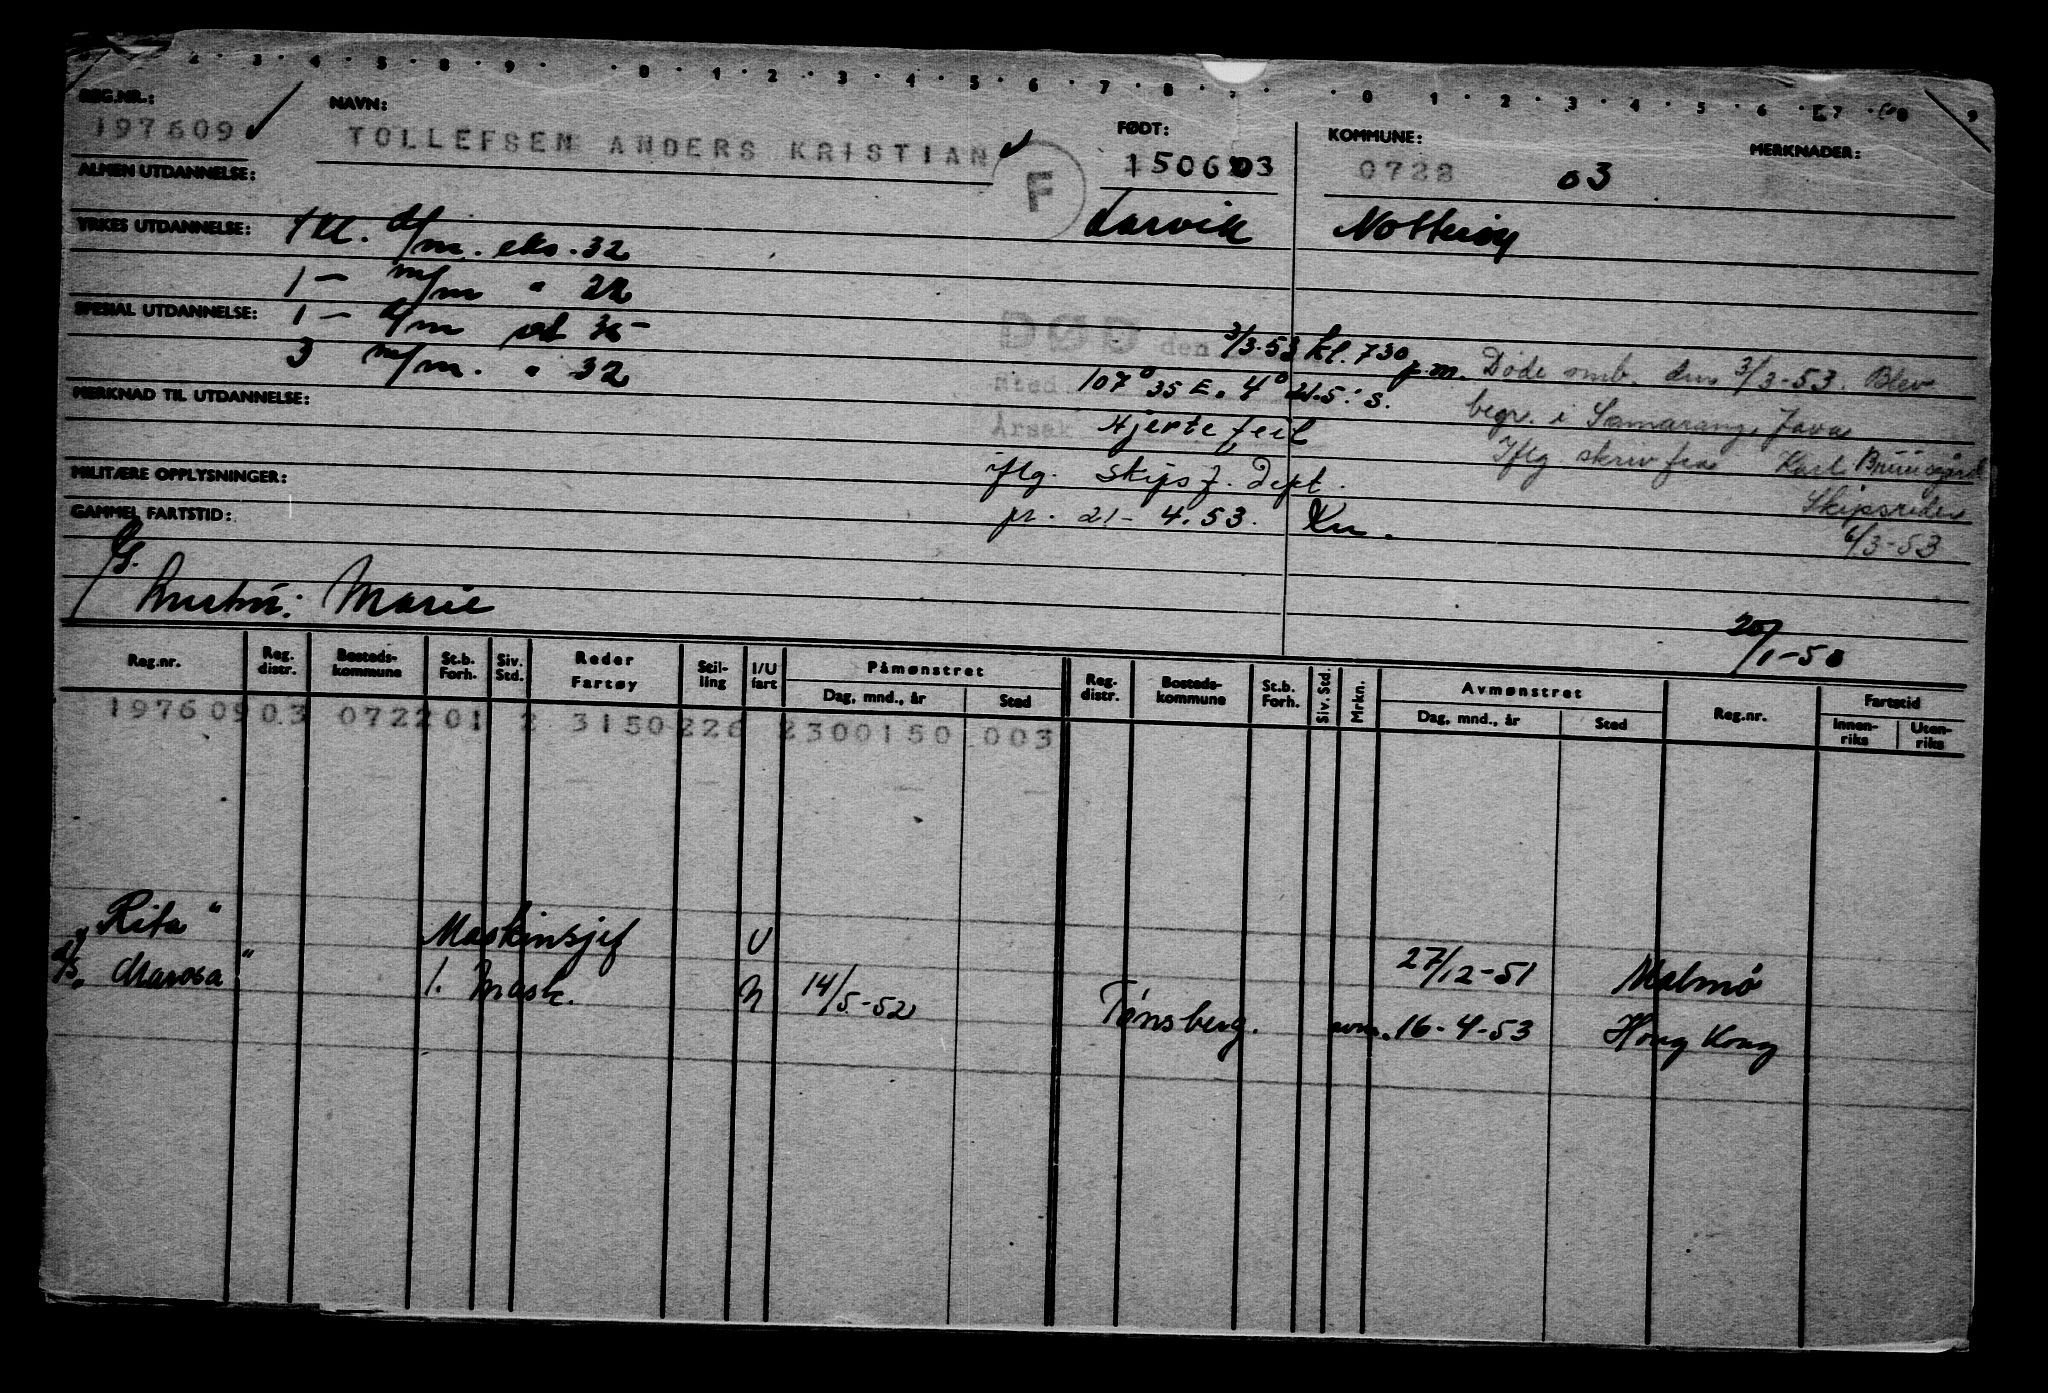 2 · 3 · 4 · 5 · 8 · 9 · 0 · 1 · 2 · 3 · 4 · 5 · 6 · 7 · 8 · 0 · 1 · 2 · 3 · 4 · 5 · 6 · 7 · 8 9
REG.NR.: NAVN: FØDT: KOMMUNE: MERKNADER:
197609 TOLLEFSEN ANDERS KRISTIAN F 150603 0722 03
ALMEN UTDANNELSE:
Larvik Nøtterøy
YRKES UTDANNELSE: 1 kl. d/m. eks. 32
1 — m/m " 22
SPESIAL UTDANNELSE: 1 — d/m sert 36 —
3 m/m. " 32
DØD den 3/3-53 kl. 730 p.m.
Sted. 107° 35 E. 4° 21.5.' S.
Årsak Hjertefeil
iflg. skipsf. dept.
pr. 21-4.53. Kn.
Døde omb. den 3/3-53. Blev
begr. i Samarang, Java
Iflg skriv fra Karl Bruusgård
Skipsreder
6/3-53
MERKNAD TIL UTDANNELSE:
MILITÆRE OPPLYSNINGER:
GAMMEL FARTSTID:
G.
hustru: Marie
20/1-50
Reg.nr. Reg. distr. Bosteds-kommune St.b. Forh. Siv. Std. Reder Fartøy Stil-ling I/U fart Påmønstret Dag, mnd., år Sted Reg. distr. Bosteds-kommune St.b. Forh. Siv. Std. Mrkn. Avmønstret Dag, mnd., år Sted Reg.nr. Fartstid Innen-riks Uten-riks
197609 03 0722 01 2 3150 226 2300150 003
"Rita" Maskinsjef U 27/12-51 Malmø
d/s. "Marosa" 1. Mask. U 14/5-52 Tønsberg. avm. 16-4-53 Hong Kong